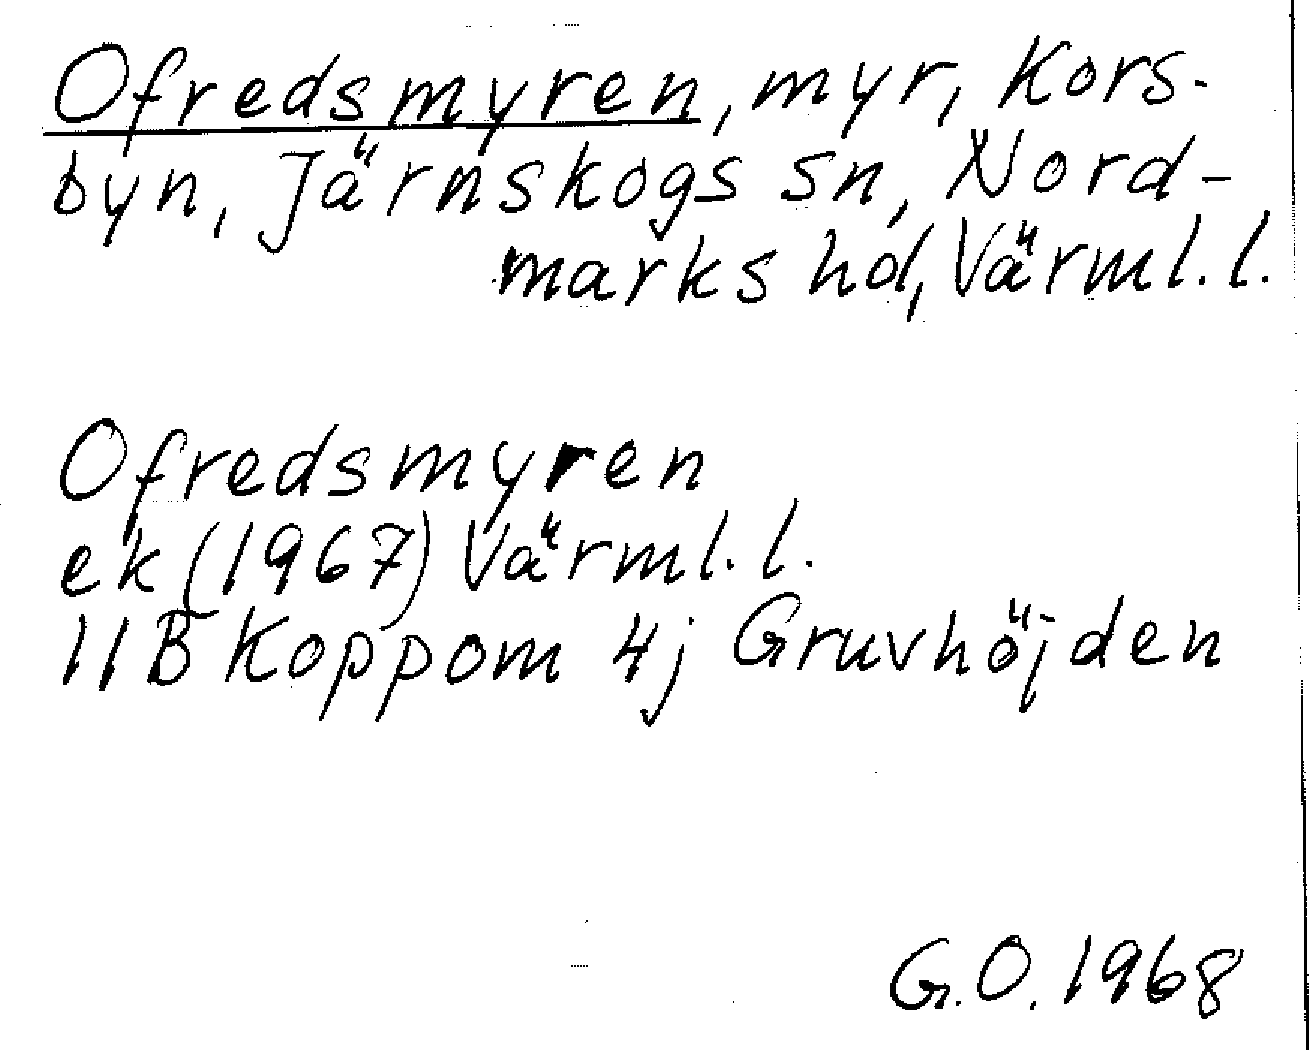 Ofredsmyren, myr, Kors-
byn, Järnskogs sn, Nord-
marks hd, Värml. l.
Ofredsmyren
ek (1967) Värml. l.
11B Koppom 4j Gruvhöjden
G.O. 1968